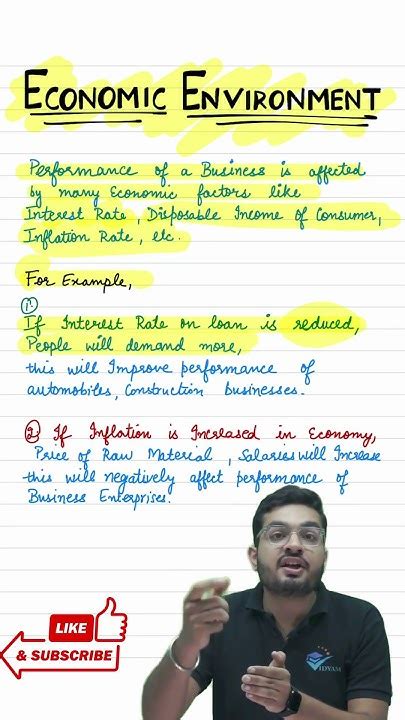 ECONOMIC ENVIRONMENT
Performance of a Business is affected
by many Economic factors like
Interest Rate, Disposable Income of Consumer,
Inflation Rate, etc.
For Example,
1.
If Interest Rate on loan is reduced,
People will demand more,
this will Improve performance of
automobiles, Construction businesses.
2. If Inflation is Increased in Economy,
Price of Raw Material, Salaries will Increase
this will negatively affect performance of
Business Enterprises.
LIKE
& SUBSCRIBE
VIDYASA